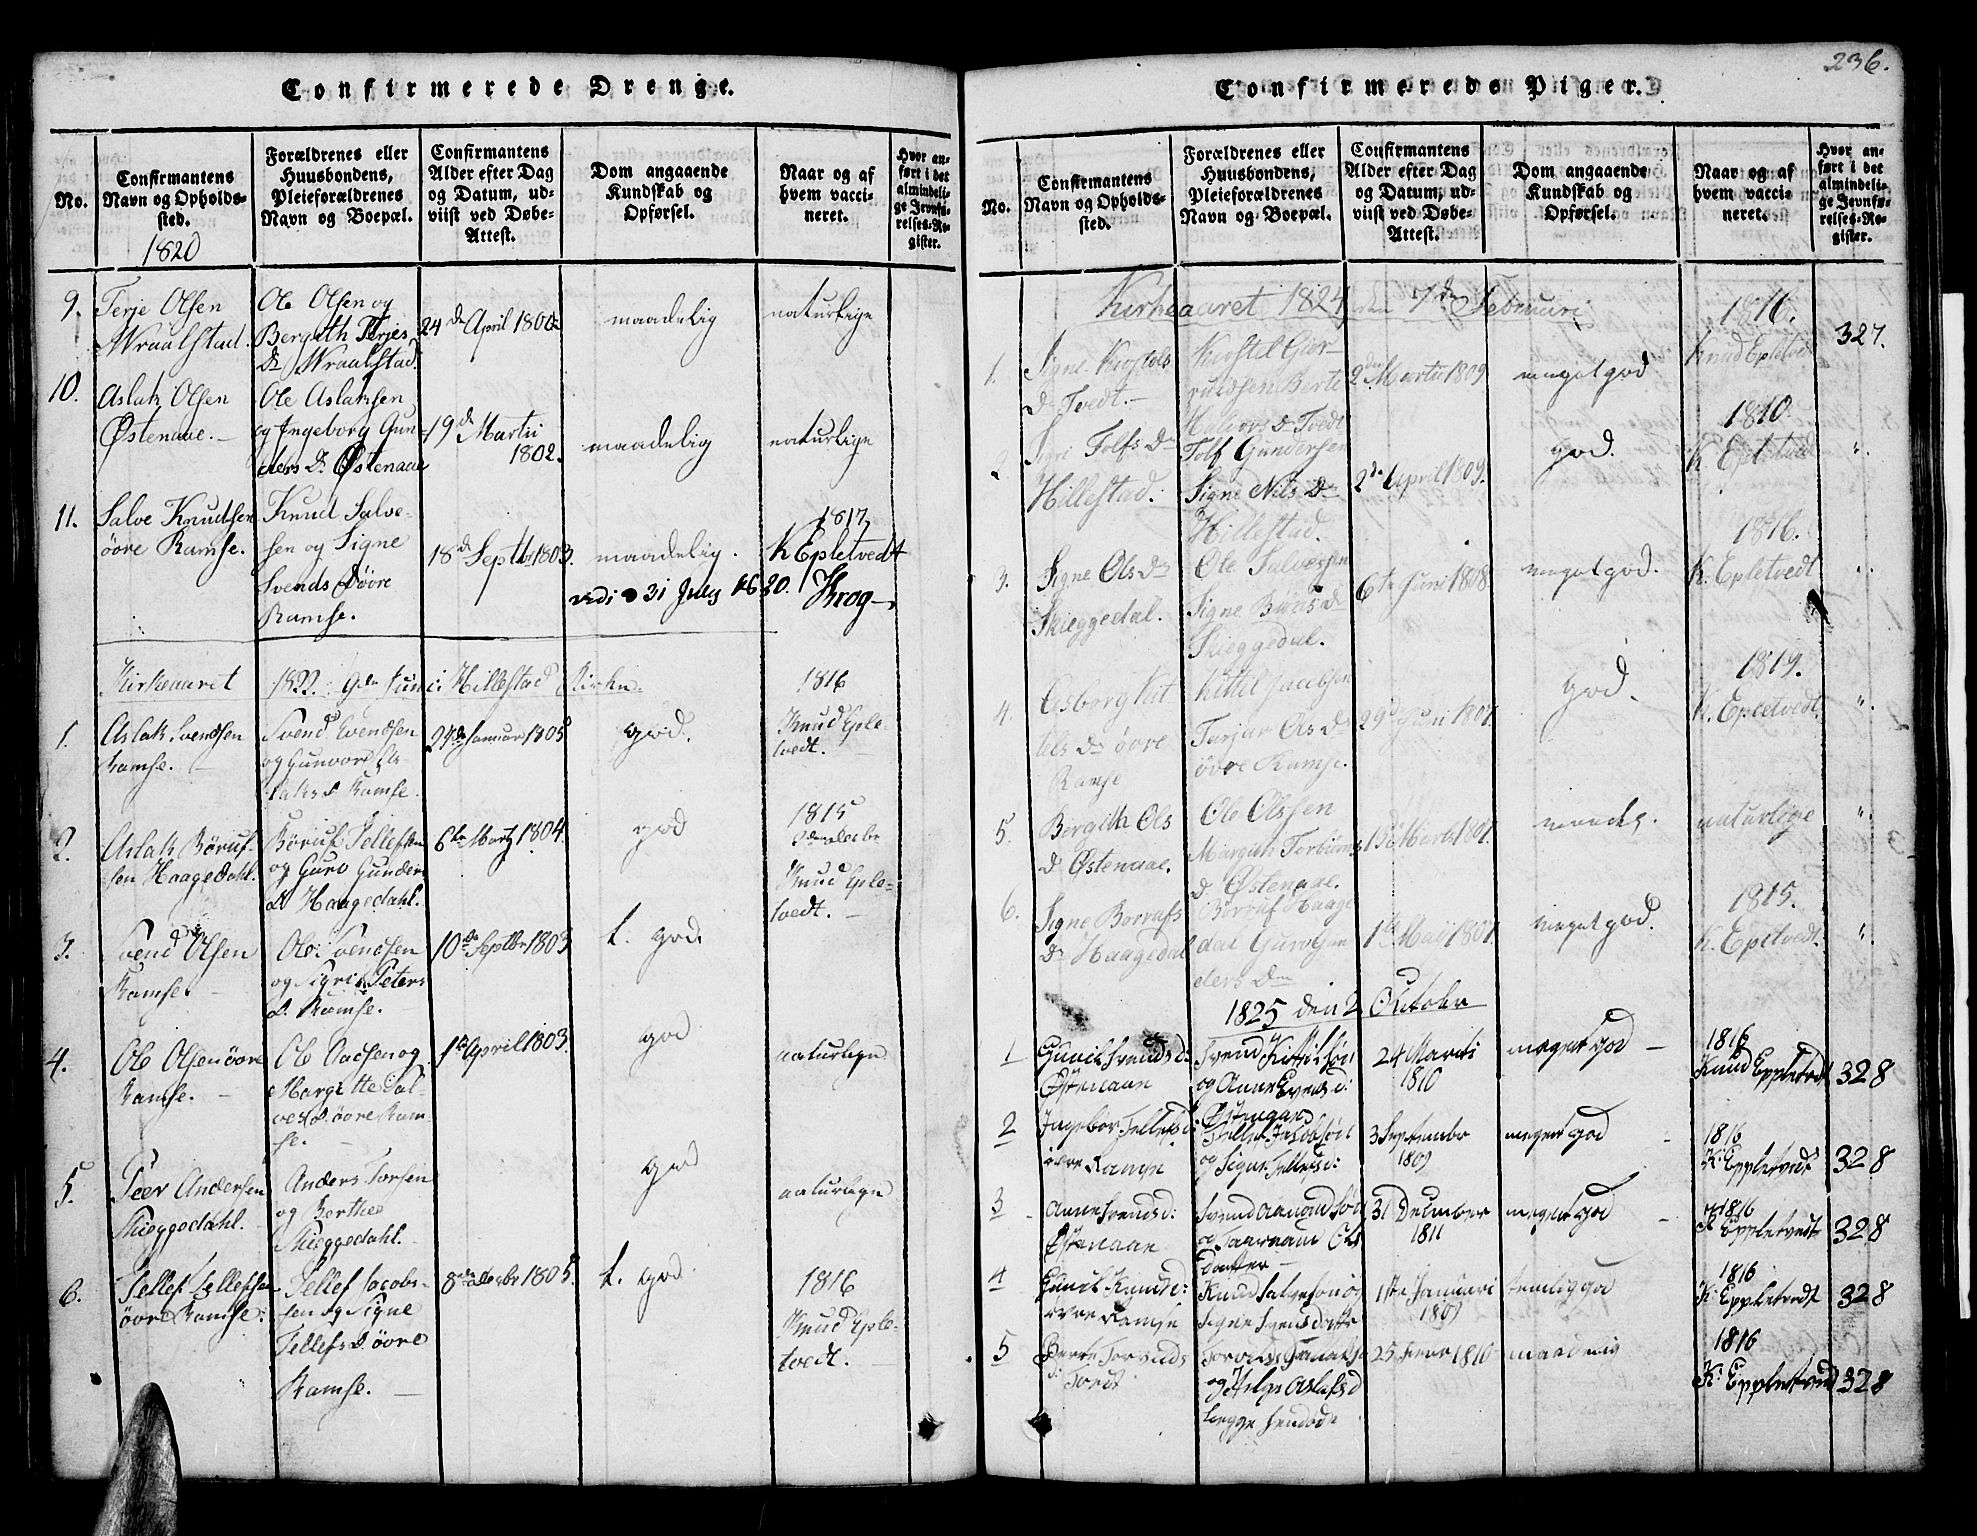 Confirmerede Drenge.
No.
Confirmantens
Navn og Opholds-
sted.
1820
Forældrenes eller
Huusbondens,
Pleieforældrenes
Navn og Boepæl.
Confirmantens
Alder efter Dag
og Datum, ud-
viist ved Døbe-
Attest.
Dom angaaende
Kundskab og
Opførsel.
Naar og af
hvem vacci-
neret.
Hvor an-
ført i det
almindeli-
ge Jevnfø-
relses-Re-
gister.
9. Terje Olsen
Wraalstad.
Ole Olsen og
Bergith Terjes
D. Wraalstad.
24 de April 1802
maadelig
naturlige
10. Aslak Olsen
Østenaae.
Ole Aslaksen
og Ingeborg Gun-
ders D. Østenaae
19 d Martii
1802.
maadelig
naturlige
11. Salve Knudsen
øøre Ramse.
Knud Salve-
sen og Signe
Svends D øvre
Ramse.
18 d Septbr 1803.
maadelig.
1817,
K Epletvedt
31 July 1820. Krog
Kirkeaaret 1822. 9de Juni Hillestad Kirke.
1. Aslak Svendsen
Ramse.
Svend Evendsen
og Gunvore As-
laks D. Ramse.
24de Januar 1805
god.
1816
Knud Eple-
tvedt.
2. Aslak Børuf-
sen Haagedahl.
Børuf Tellefsen
og Guro Gunders
D. Haagedahl.
6te Martz 1804.
god
1815
Knud Eple-
tvedt.
3. Svend Olsen
Ramse.
Ole Svendsen
og Sigri Peters
D. Ramse.
10de Septbr 1803
t. god.
4. Ole Olsen øvre
Ramse.
Ole Aadsen og
Margitte Sal-
ves D. øvre Ram-
se.
1te April 1803.
god
naturlige
5. Peer Andersen
Skieggedahl.
Anders Torsen
og Berthe
Skieggedahl.
god
naturlige
6. Tellef Tellefsen
øvre Ramse.
Tellef Jacobs-
sen og Signe
Tellefs D. øvre
Ramse.
8de 1805.
t. god
1816
Knud Eple-
tvedt.
236.
Confirmerede Piger.
No.
Confirmantens
Navn og Opholds-
sted.
Forældrenes eller
Huusbondens,
Pleieforældrenes
Navn og Boepæl.
Confirmantens
Alder efter Dag
og Datum, ud-
viist ved Døbe-
Attest.
Dom angaaende
Kundskab og
Opførsel.
Naar og af
hvem vacci-
neret.
Hvor an-
ført i det
almindeli-
ge Jevnfø-
relses-Re-
gister.
Kirkeaaret 1824, den 7de Februari
1. Signe Kiostels
D. Tvedt.
Kiostel Gier-
ruldsen Berte
Halvors D. Tvedt
2den Martii 1809.
meget god
1816.
Knud Epletvedt
327.
2 Sigri Tolfs D
Hillestad.
Tolf Gundersen
Signe Nils D
Hillestad.
2de April 1809.
god.
1810.
K. Epletvedt
".
3. Signe Ols D
Skieggedal.
Ole Salvessen
Signe Børufs D
Skieggedal.
6te Juni 1808
meget god.
1816.
K. Epletvedt
".
4. Asborg Kit
tels D øvre
Ramse
Kittil Jacobsen
Tarjer As D
øvre Ramse.
29d Juni 1807.
god.
1819.
K. Epletvedt.
".
5. Bergith Ols
D Østenaae.
Ole Olssen
Margith Torbiørns
D Østenaae.
Marts 1807.
maadel.
naturlige
".
6. Signe Borrufs
D. Haagedal
Borruf Haage
dal Guro Gun
ders D
1te Maii 1807.
meget god.
1815.
K. Epletvedt.
".
1825 den 2 October
1 Gunild Svends d:
Østenaae
Svend Kittilsøn
og Anne Evens d:
Østenaae
24 Martii
1810
meget god
1816
Knud Eppletvedt
328
2 Ingebor Tellefs d:
øvre Ramse
Tellef Jacobsøn
og Signe Tellefs d:
3 September
1809
meget god
1816
K: Eppletvedt
328
3 Anne Svends d:
Østenaae
Svend Aanondsøn
og Taaraand Ols
datter
31 December
1811
meget god
1816
K: Eppletvedt
328
4 Gunild Knuds d:
øvre Ramse
Knud Salvesøn og
Signe Svensdatter
1ste Januari
1809
temlig god
1816
K: Eppletvedt
328
5 Berte Torvilds
d: Tvedt
og Helge Aslafs d
25 Febr 1810
maadelig
1816
K: Eppletvedt
328